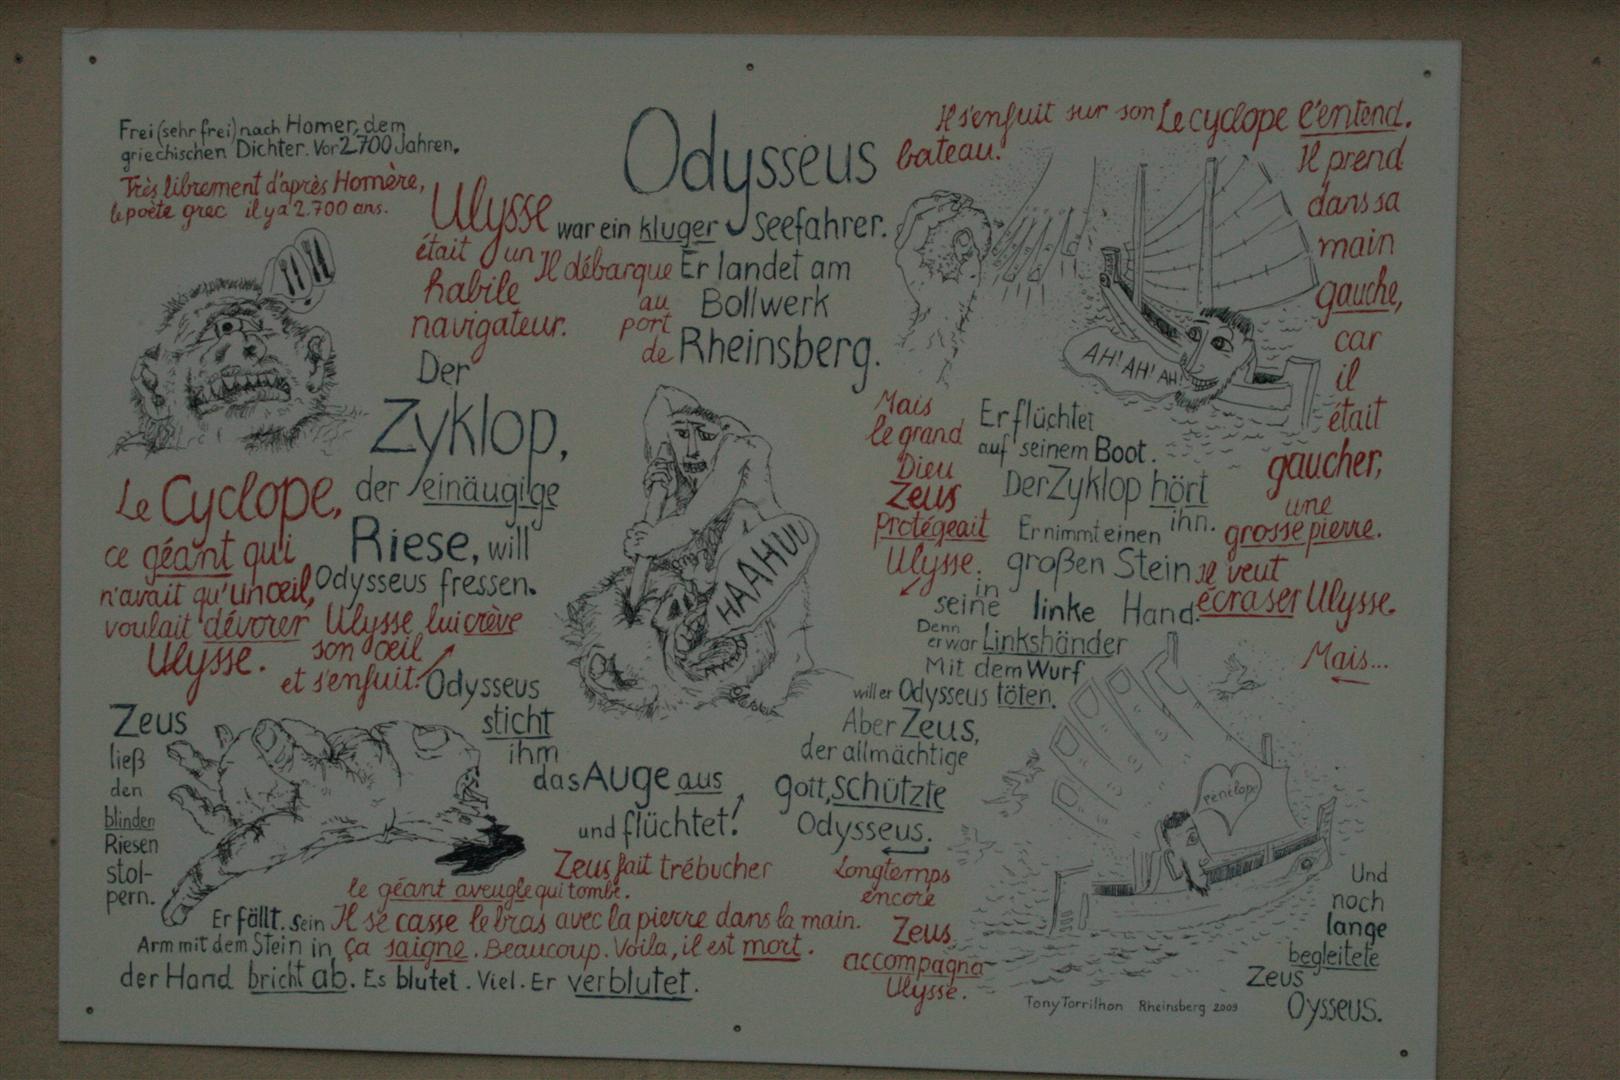 Frei (sehr frei) nach Homer, dem
griechischen Dichter. Vor 2.700 Jahren.
Très librement d'après Homère,
le poète grec il y a 2.700 ans.
Odysseus
war ein kluger Seefahrer.
Er landet am
Bollwerk
Rheinsberg.
Ulysse
était un
habile
navigateur.
Il débarque
au
port
de
Der
Zyklop,
der einäugige
Riese, will
Odysseus fressen.
Le Cyclope,
ce géant qui
n'avait qu'un oeil,
voulait dévorer
Ulysse.
Ulysse lui crève
son oeil
et s'enfuit.
Odysseus
sticht
ihm
das Auge aus
und flüchtet!
HAAHUU
Il s'enfuit sur son
bateau.
Le cyclope l'entend.
Il prend
dans sa
main
gauche,
car
il
était
gaucher,
une
grosse pierre.
Il veut
écraser Ulysse.
Mais...
AH! AH! AH!
Er flüchtet
auf seinem Boot.
Der Zyklop hört
ihn.
Er nimmt einen
großen Stein
in
seine linke Hand.
Denn
er war Linkshänder
Mit dem Wurf
will er Odysseus töten.
Aber Zeus,
der allmächtige
gott, schützte
Odysseus.
Mais
le grand
Dieu
Zeus
protégeait
Ulysse.
Zeus
ließ
den
blinden
Riesen
stol-
pern.
Er fällt. Sein
Arm mit dem Stein in
der Hand bricht ab. Es blutet. Viel. Er verblutet.
Zeus fait trébucher
le géant aveugle qui tombe.
Il se casse le bras avec la pierre dans la main.
ça saigne. Beaucoup. Voila, il est mort.
Longtemps
encore
Zeus
accompagna
Ulysse.
Pénélope
Und
noch
lange
begleitete
Zeus
Oysseus.
Tony Torrilhon Rheinsberg 2009